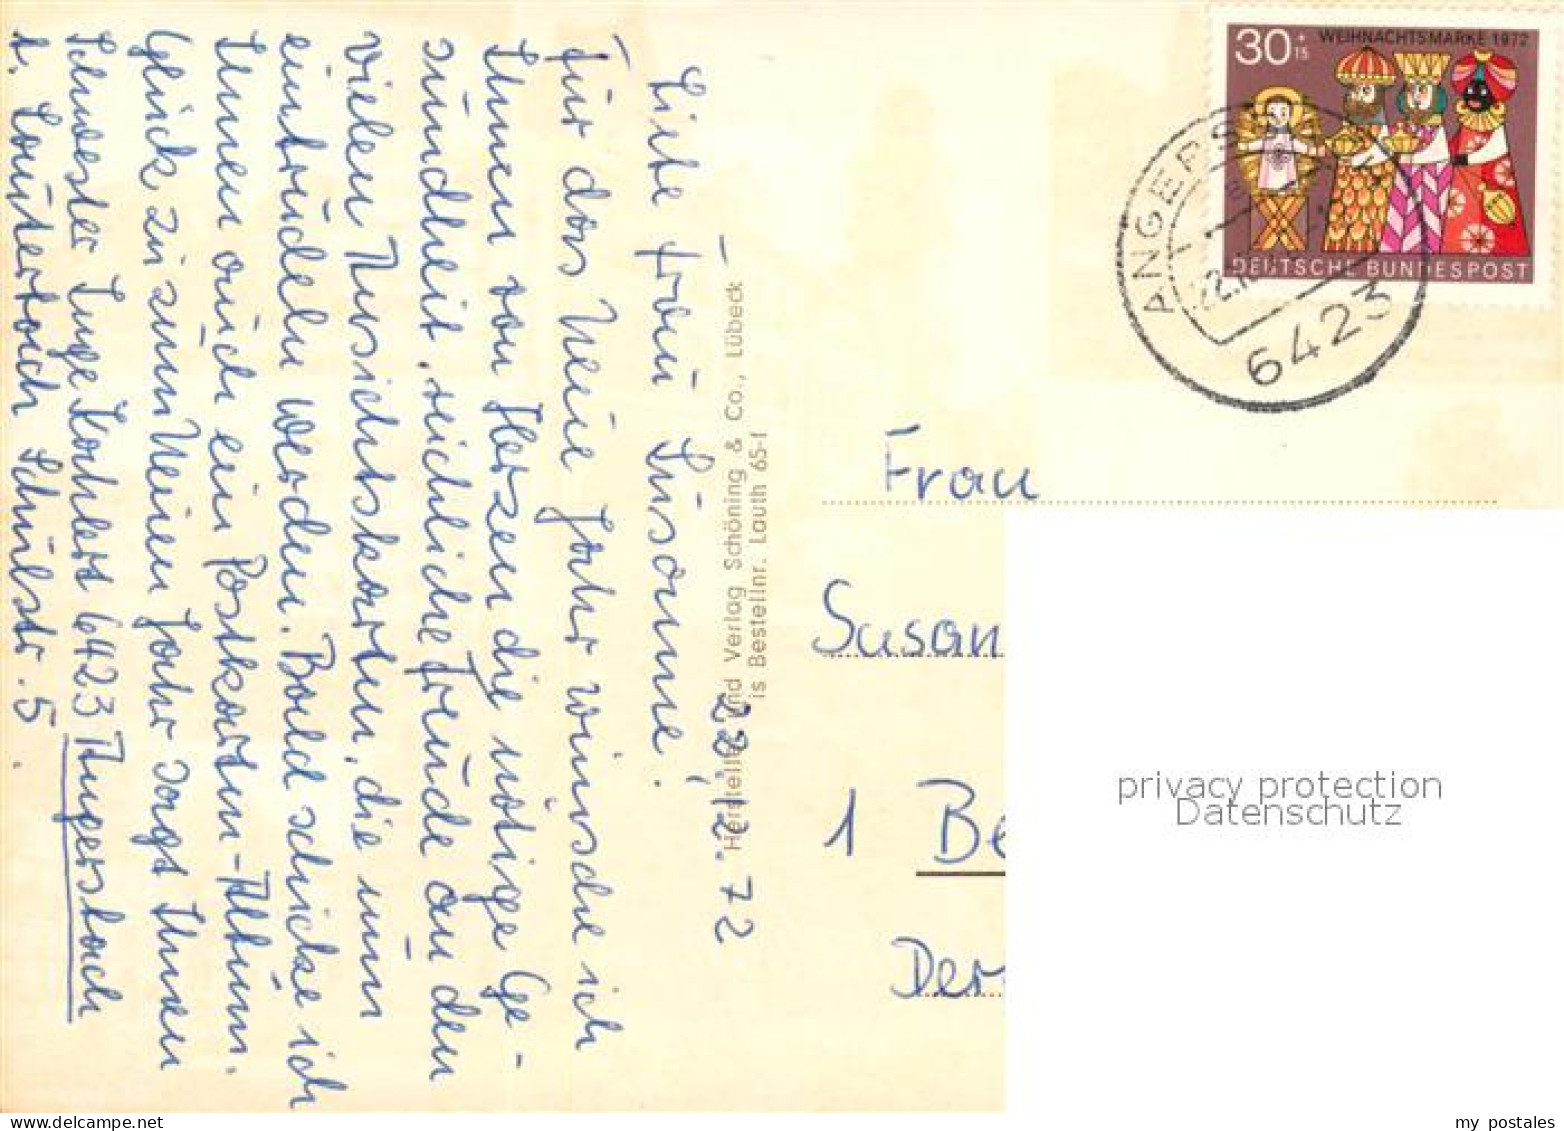 22.12.72
Liebe Frau Susanne!
Für das Neue Jahr wünsche ich
Ihnen von Herzen die nötige Ge-
sundheit, reichliche Freude an den
vielen Ansichtskarten, die nun
eintrudeln werden. Bald schicke ich
Ihnen auch ein Postkarten-Album.
Glück zu zum Neuen Jahr sagt Ihnen
Schwester Inge 6423 Angersbach
b. Lauterbach Schulstr. 5.
Hersteller und Verlag Schöning & Co., Lübeck
is Bestellnr. Lauth 65-1
WEIHNACHTSMARKE 1972
30+15
DEUTSCHE BUNDESPOST
ANGERSB
6423
Frau
Susan
1 Be
Der
privacy protection
Datenschutz
my postales